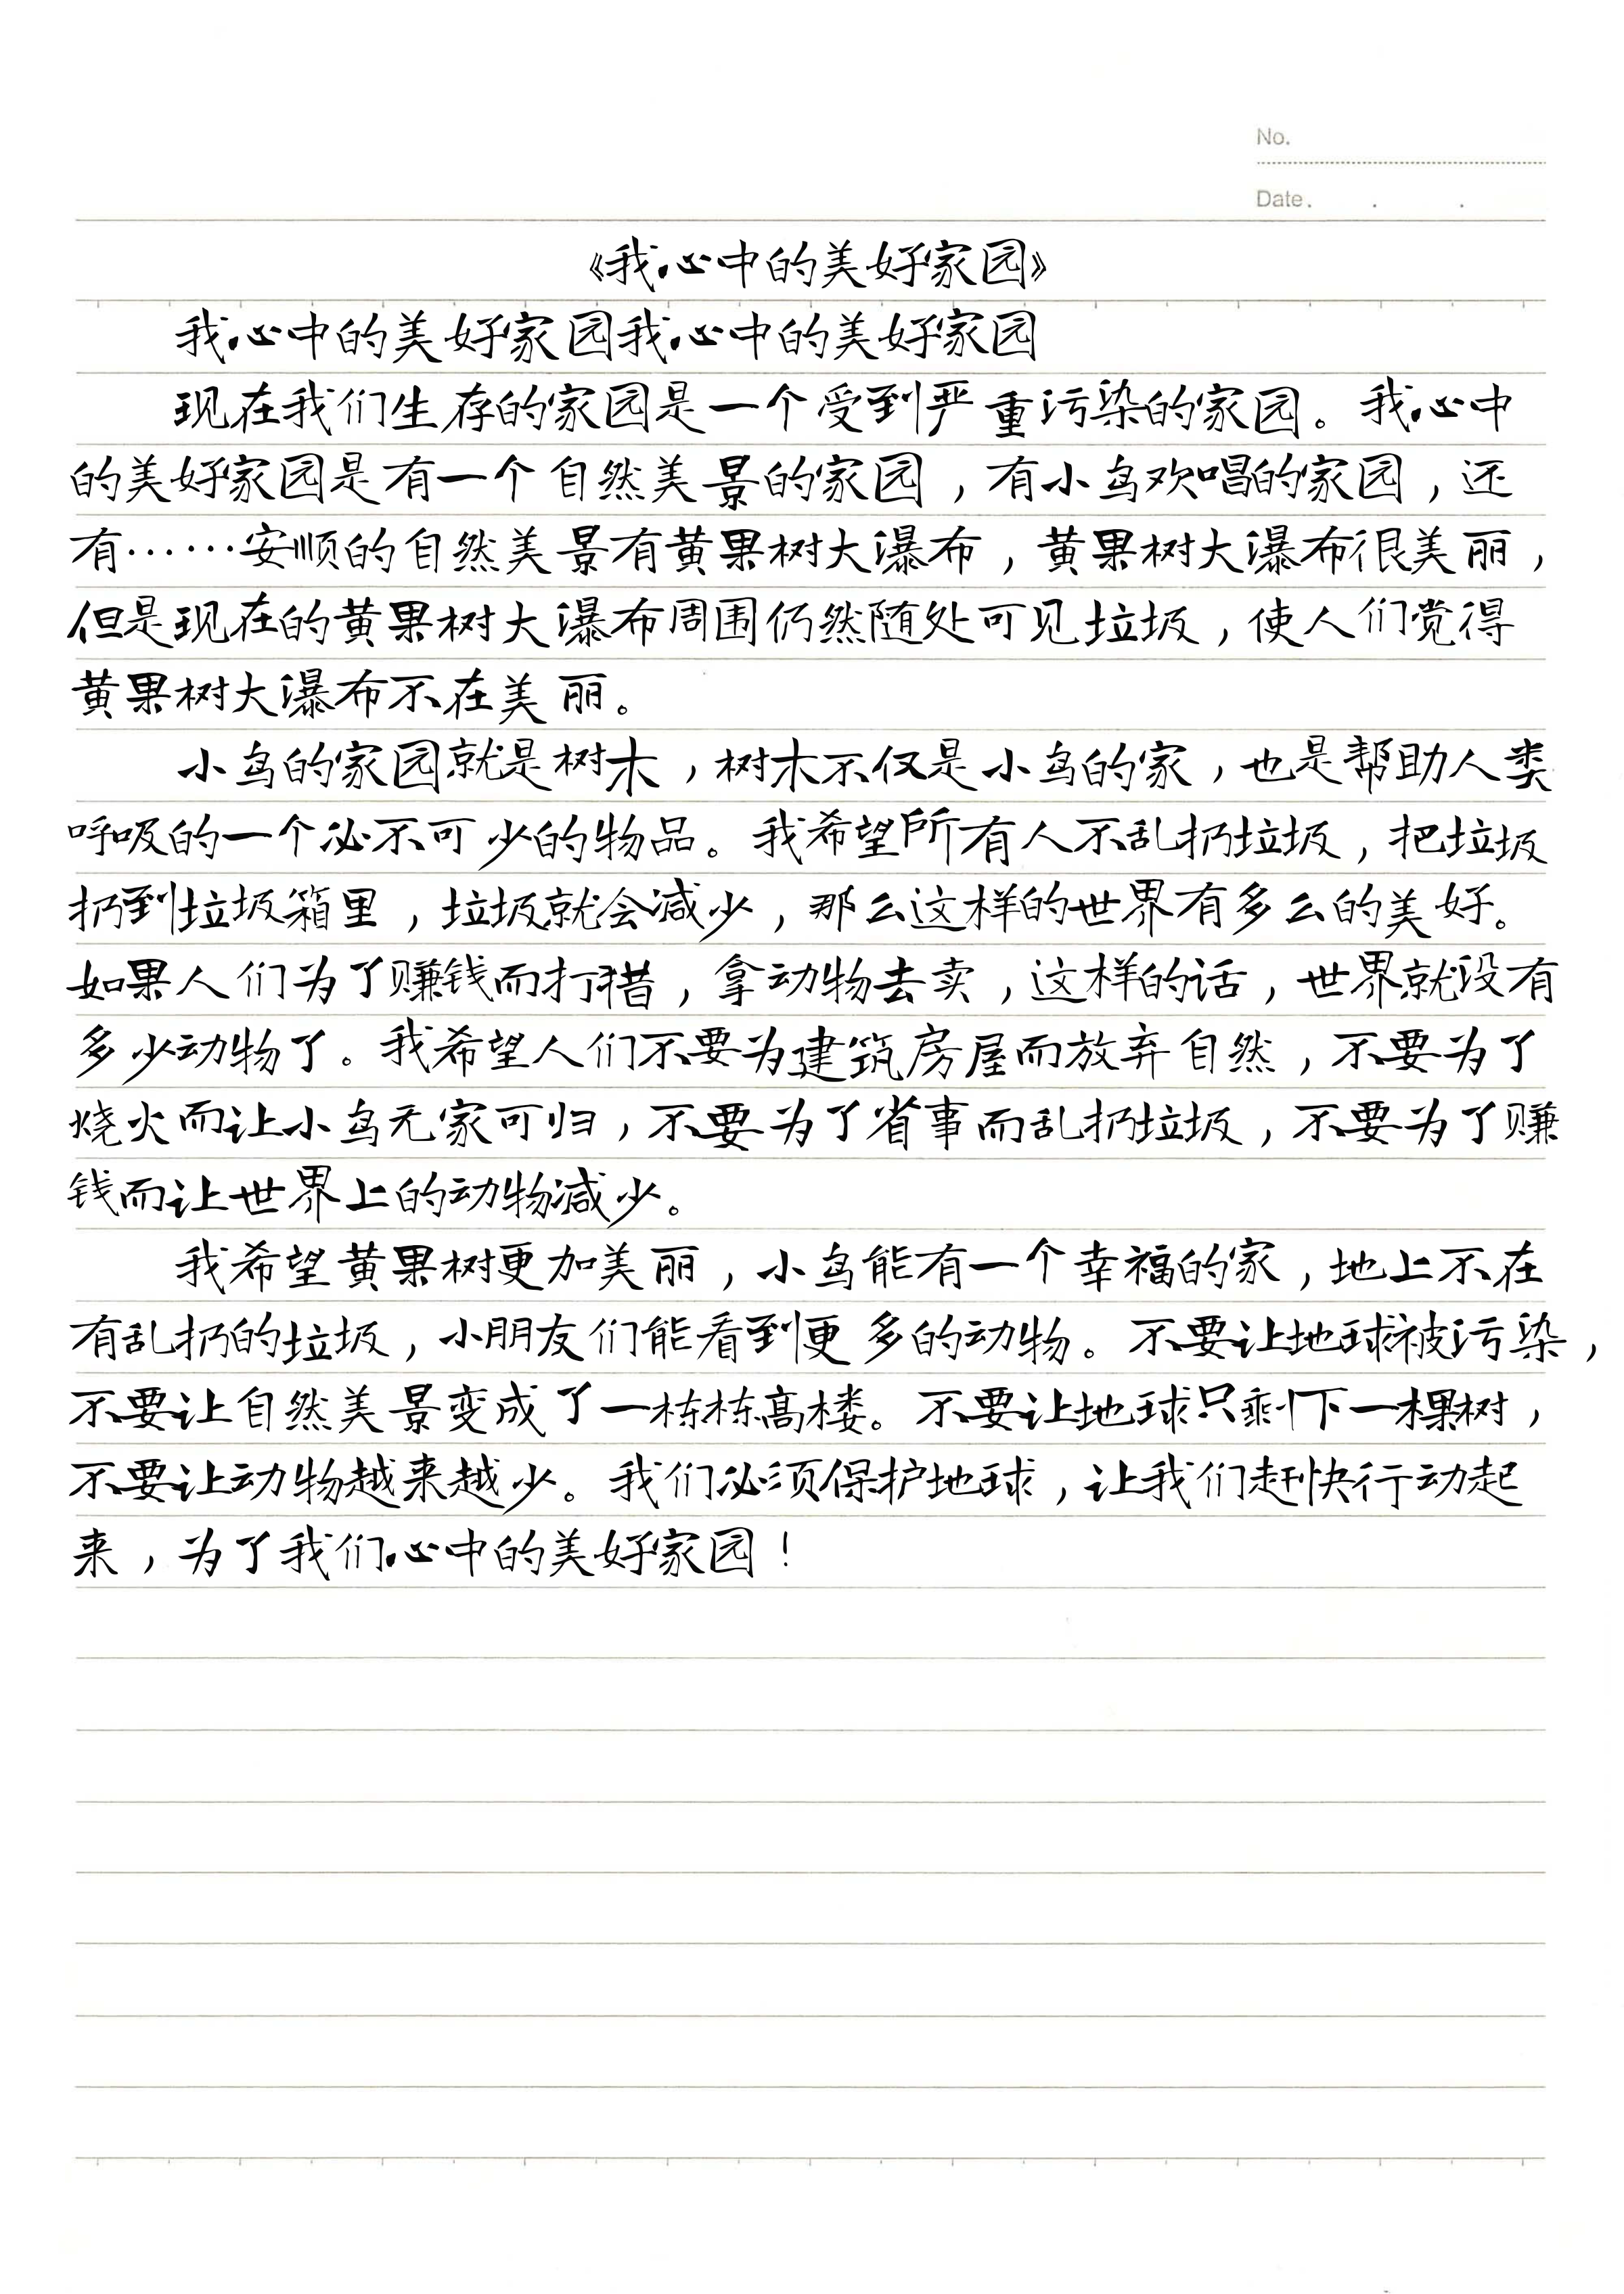 No.
Date.
《我心中的美好家园》
我心中的美好家园我心中的美好家园
现在我们生存的家园是一个受到严重污染的家园。我心中
的美好家园是有一个自然美景的家园，有小鸟欢唱的家园，还
有……安顺的自然美景有黄果树大瀑布，黄果树大瀑布很美丽，
但是现在的黄果树大瀑布周围仍然随处可见垃圾，使人们觉得
黄果树大瀑布不在美丽。
小鸟的家园就是树木，树木不仅是小鸟的家，也是帮助人类
呼吸的一个必不可少的物品。我希望所有人不乱扔垃圾，把垃圾
扔到垃圾箱里，垃圾就会减少，那么这样的世界有多么的美好。
如果人们为了赚钱而打猎，拿动物去卖，这样的话，世界就没有
多少动物了。我希望人们不要为建筑房屋而放弃自然，不要为了
烧火而让小鸟无家可归，不要为了省事而乱扔垃圾，不要为了赚
钱而让世界上的动物减少。
我希望黄果树更加美丽，小鸟能有一个幸福的家，地上不在
有乱扔的垃圾，小朋友们能看到更多的动物。不要让地球被污染，
不要让自然美景变成了一栋栋高楼。不要让地球只剩下一棵树，
不要让动物越来越少。我们必须保护地球，让我们赶快行动起
来，为了我们心中的美好家园！